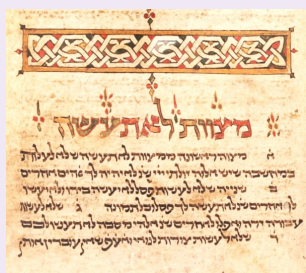 מצוות לא תעשה
א מצוה ראשונה ממצוות לא תעשה שלא לעלות
במחשבה שיש שם אלוה זולתי ייי שנ' לא יהיה לך אחרים
ב שנייה שלא לעשות פסל לא יעשה בידו ולא יעשו
לו אחרים שנ' לא תעשה לך פסל וכל תמונה ג שלא לעשות
עבודה זרה לאחרים שנ' מסכה לא תעשו לכם
ד שלא לעשות צורות לנואי ואע'פ שאין עובדין אותן